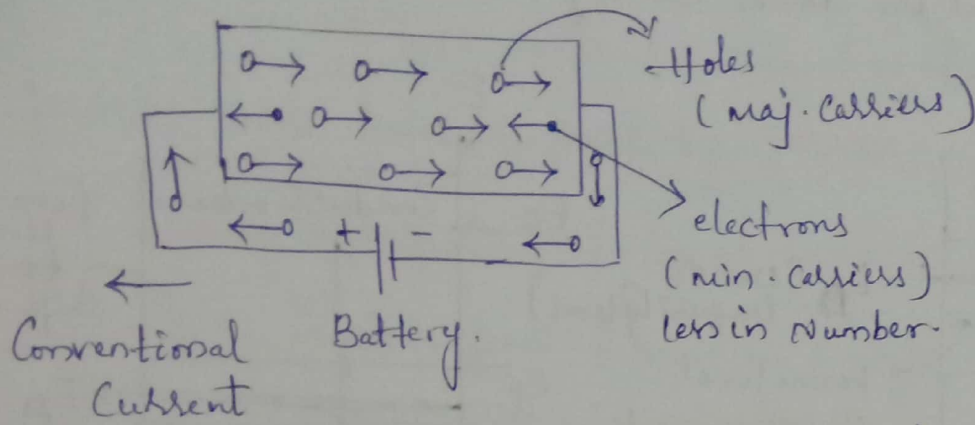 Holes
(maj. carriers)
+ -
electrons
(min. carriers)
less in number.
Conventional
Current
Battery.